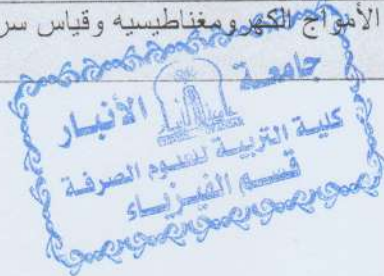 الأمواج الكهرومغناطيسيه وقياس سر
جامعة
الأنبار
كلية التربية للعلوم الصرفة
قسم الفيزياء